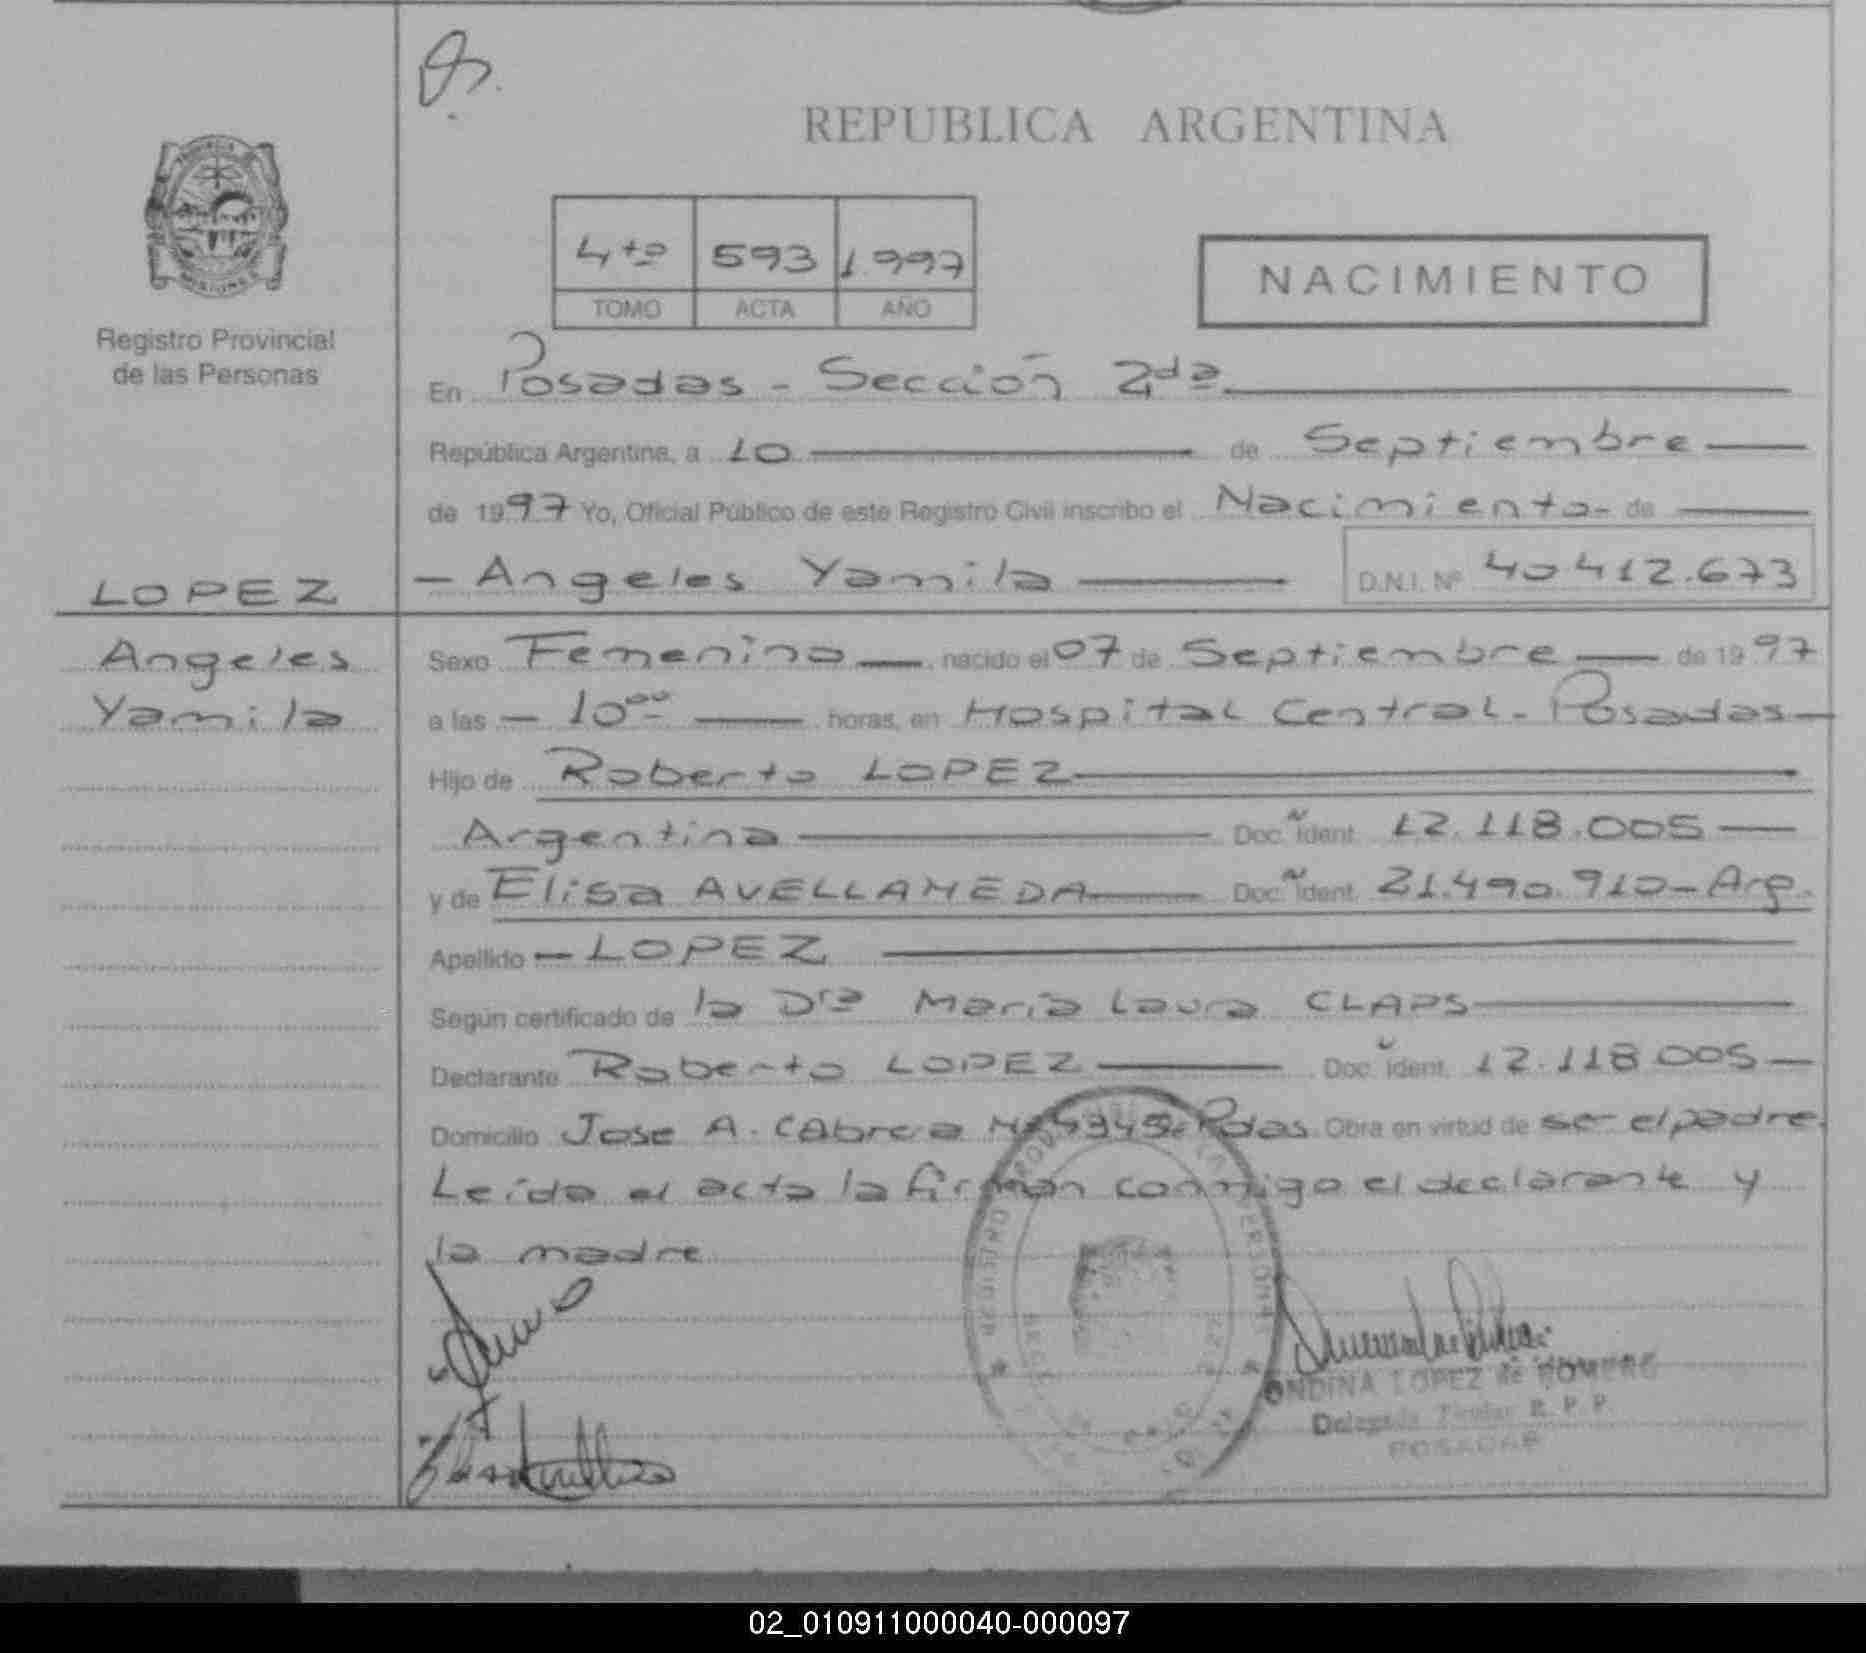 REPUBLICA ARGENTINA
4to 593 1997
TOMO ACTA AÑO
NACIMIENTO
Registro Provincial
de las Personas
En Posadas - Sección 2da
República Argentina, a 10 de Septiembre
de 1997 Yo, Oficial Público de este Registro Civil inscribo el Nacimiento- de
LOPEZ
- Angeles Yamila D.N.I. Nº 40412.673
Angeles
Yamila
Sexo Femenino nacido el 07 de Septiembre de 1997
a las - 10oo horas, en Hospital Central - Posadas -
Hijo de Roberto LOPEZ
Argentina Doc. Ident. 12.118.005
y de Elisa AVELLANEDA Doc. Ident. 21.490.910 - Arg.
Apellido - LOPEZ
Según certificado de la Dra Maria Laura CLAPS
Declarante Roberto LOPEZ Doc. Ident. 12.118.005
Domicilio Jose A. CAbrera Nº 5345 Pdas Obra en virtud de ser el padre.
Leida el acta la firman conmigo el declarante y
la madre
ONDINA LOPEZ de ROMERO
Delegada Titular R. P. P.
POSADAS
02_010911000040-000097